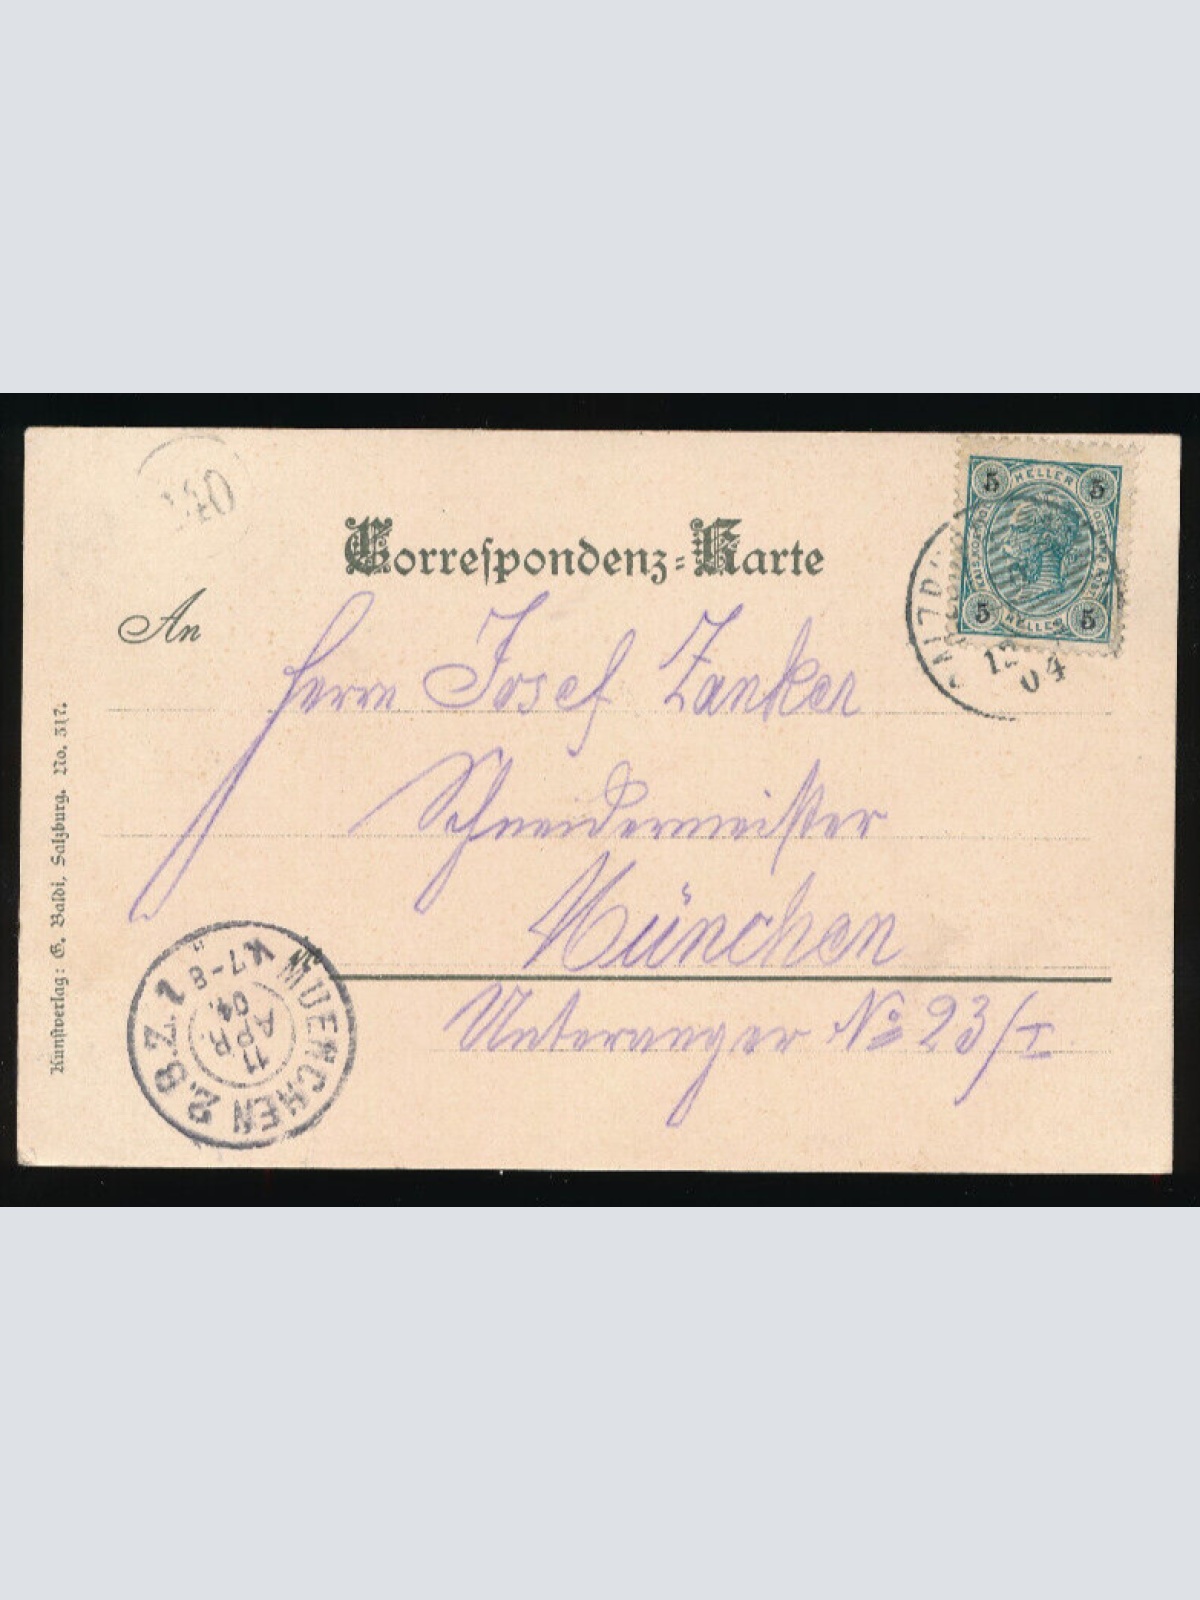 Correſpondenz-Karte
An
Herrn Josef Zanker
Schneidermeister
München
Unteranger No 23/I
Kunſtverlag: G. Baldi, Salzburg. No. 317.
5 HELLER 5
5 HELLER 5
12
04
MUENCHEN 2. B.Z. 1
11 APR. 04.
V.7-8